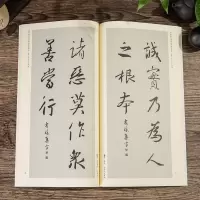 誠實乃為人
之根本
諸惡莫作眾
善當行